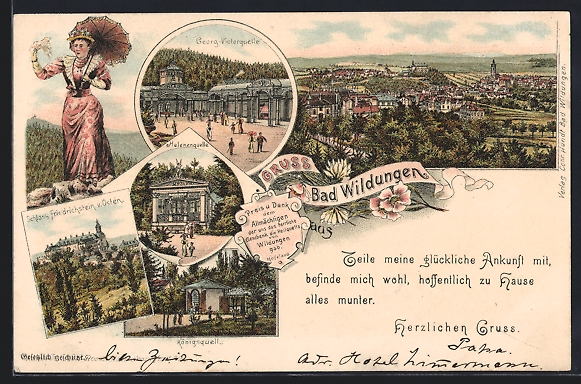 Georg-Victorquelle
Helenenquelle
GRUSS
aus
Bad Wildungen
Preis u Dank
dem
Allmächtigen
der uns das herrliche
Geschenk, die Heilquelle
von
Wildungen
gab.
Hufeland
Schloss Friedrichstein v. Osten.
Königsquell.
Teile meine glückliche Ankunft mit,
befinde mich wohl, hoffentlich zu Hause
alles munter.
Herzlichen Gruss.
Papa.
Gesetzlich geschützt.
Adr. Hotel Zimmermann
Verlag Conr. Hundt Bad Wildungen.